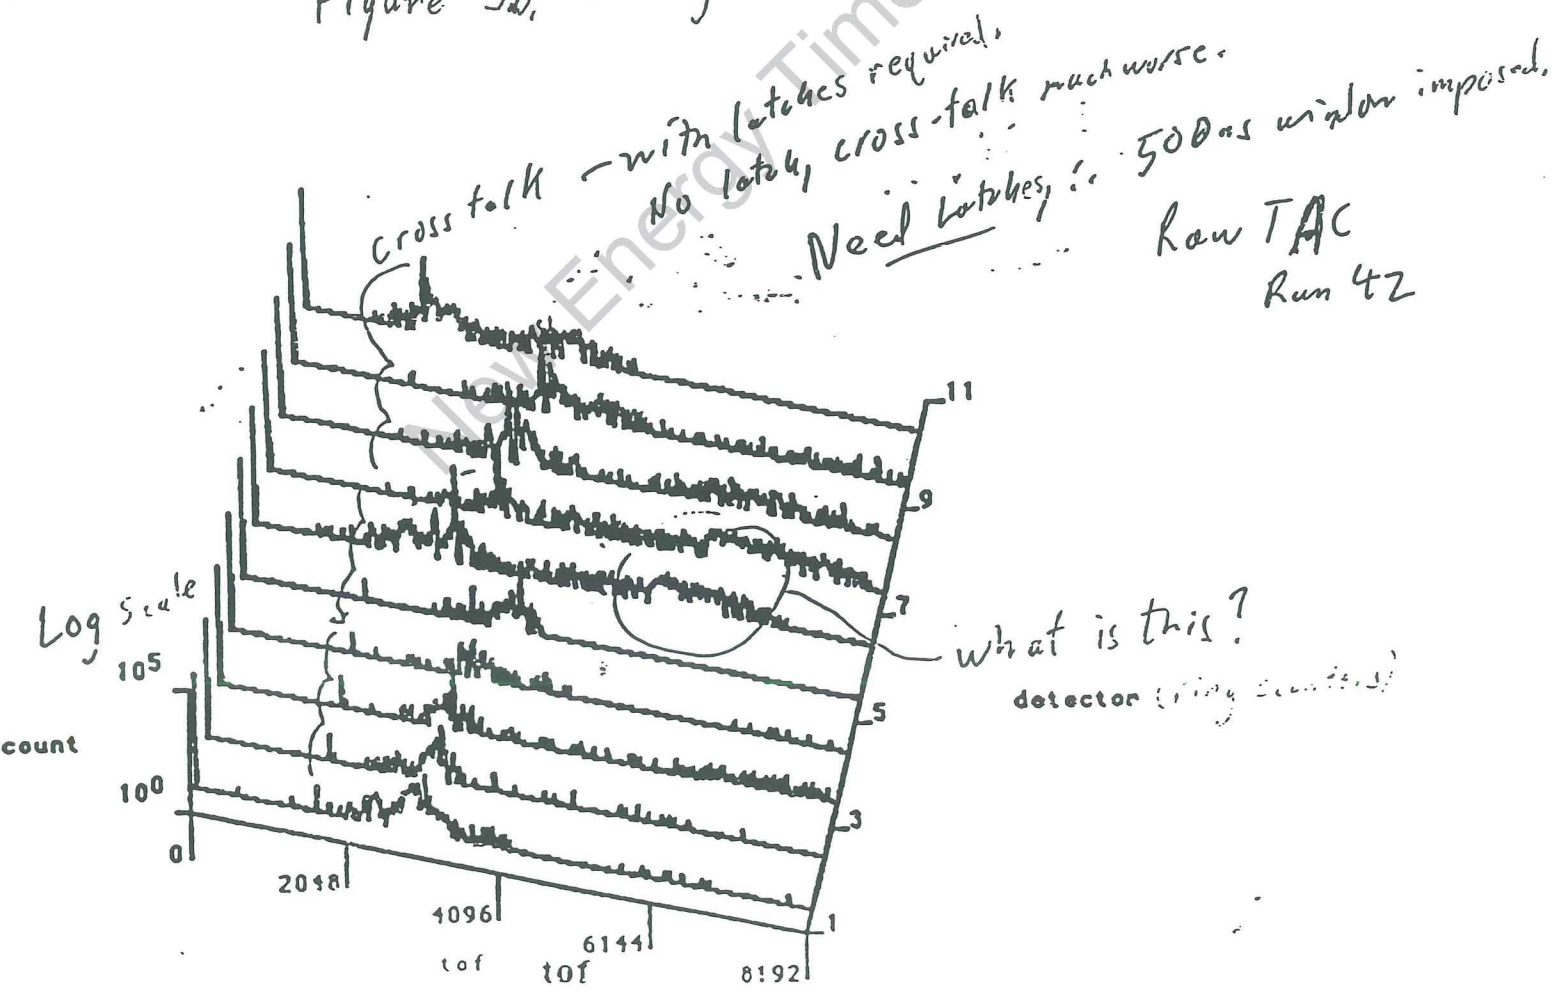 Figure
cross talk - with latches required.
No latch, cross-talk much worse.
Need Latches, ∴ 500ns window imposed.
Raw TAC
Run 42
New Energy Times
11
9
7
5
3
1
What is this?
detector (ring
Log Scale
10^5
count
10^0
0
2048
4096
6144
8192
tof
tof